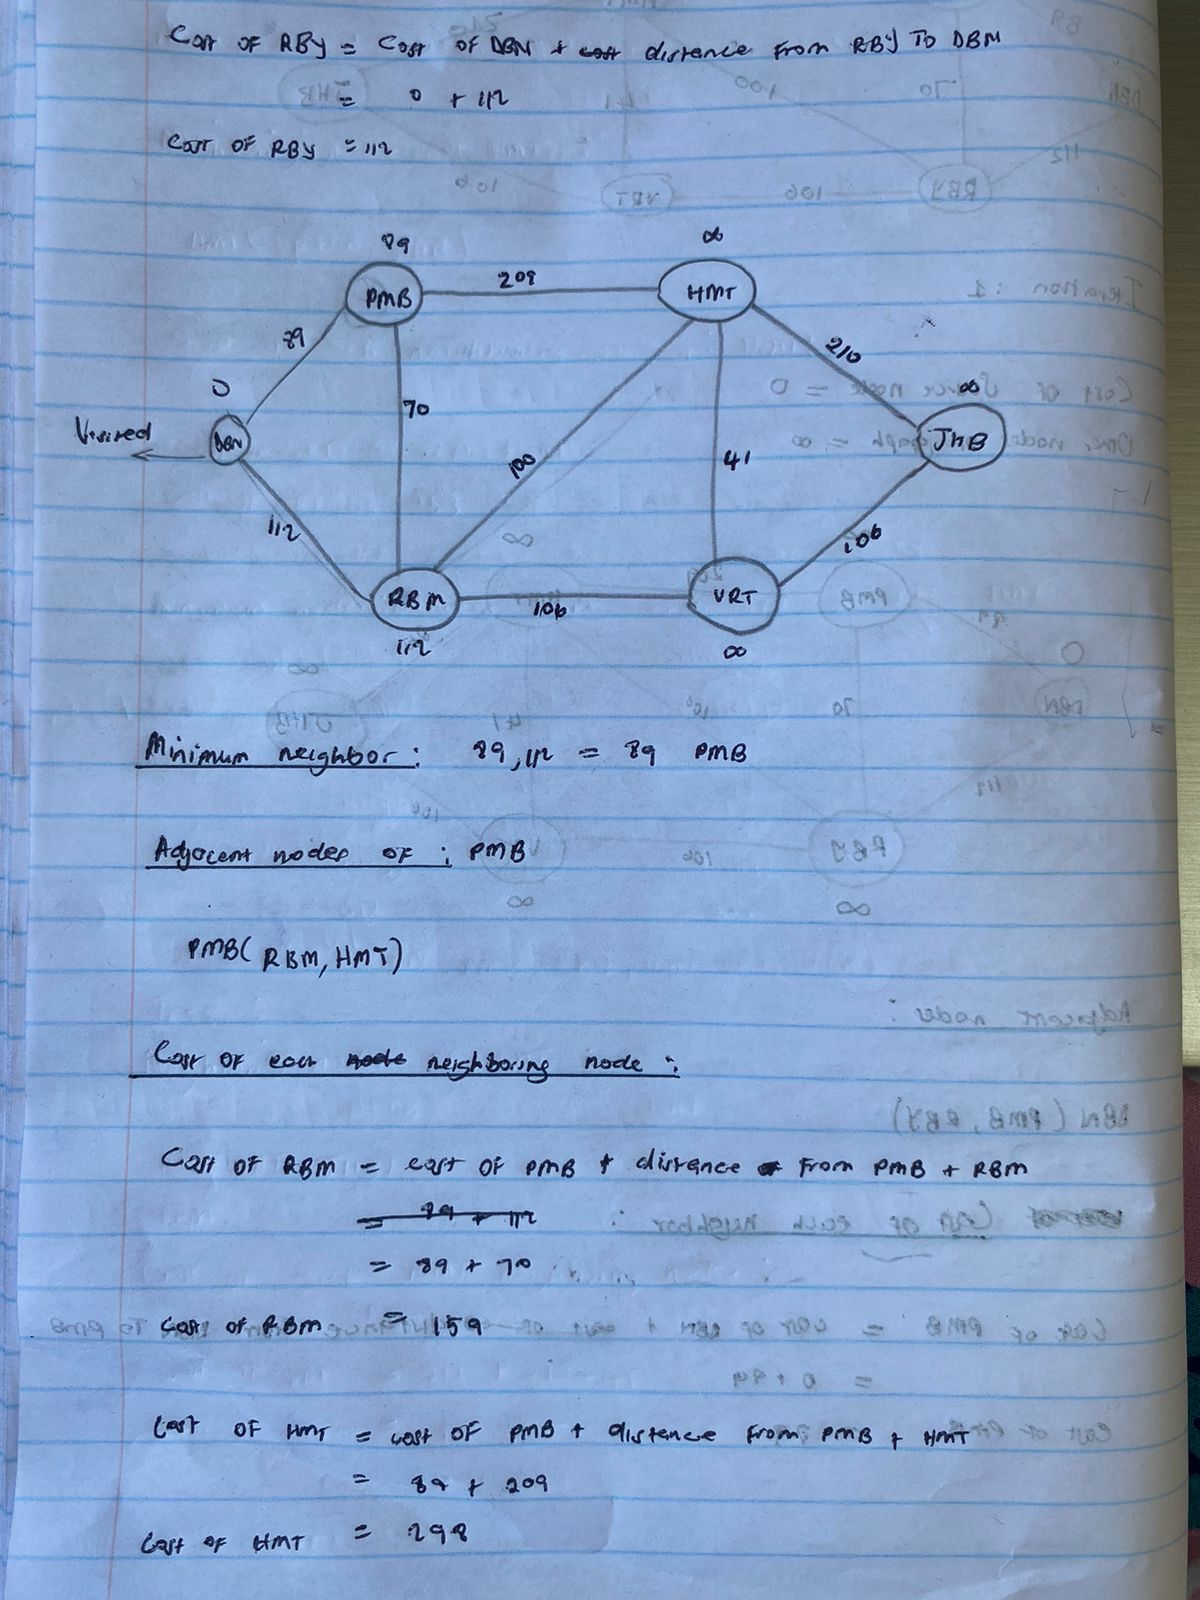 Cost of RBY = Cost of DBN + cost distance from RBY TO DBM
= 0 + 112
Cost OF RBY = 112
89
∞
PMB
209
HMT
89
210
0
70
∞
Visited
DBN
100
41
JHB
112
106
RBM
106
VRT
112
∞
Minimum neighbor: 89, 112 = 89 PMB
Adjacent nodes OF : PMB
PMB( RBM, HMT)
Cost OF each node neighboring node :
Cost OF RBM = cost OF PMB + distance from PMB + RBM
= 89 + 112
= 89 + 70
Cost OF RBM = 159
Cost OF HMT = cost OF PMB + distance from PMB + HMT
= 89 + 209
Cost OF HMT = 298